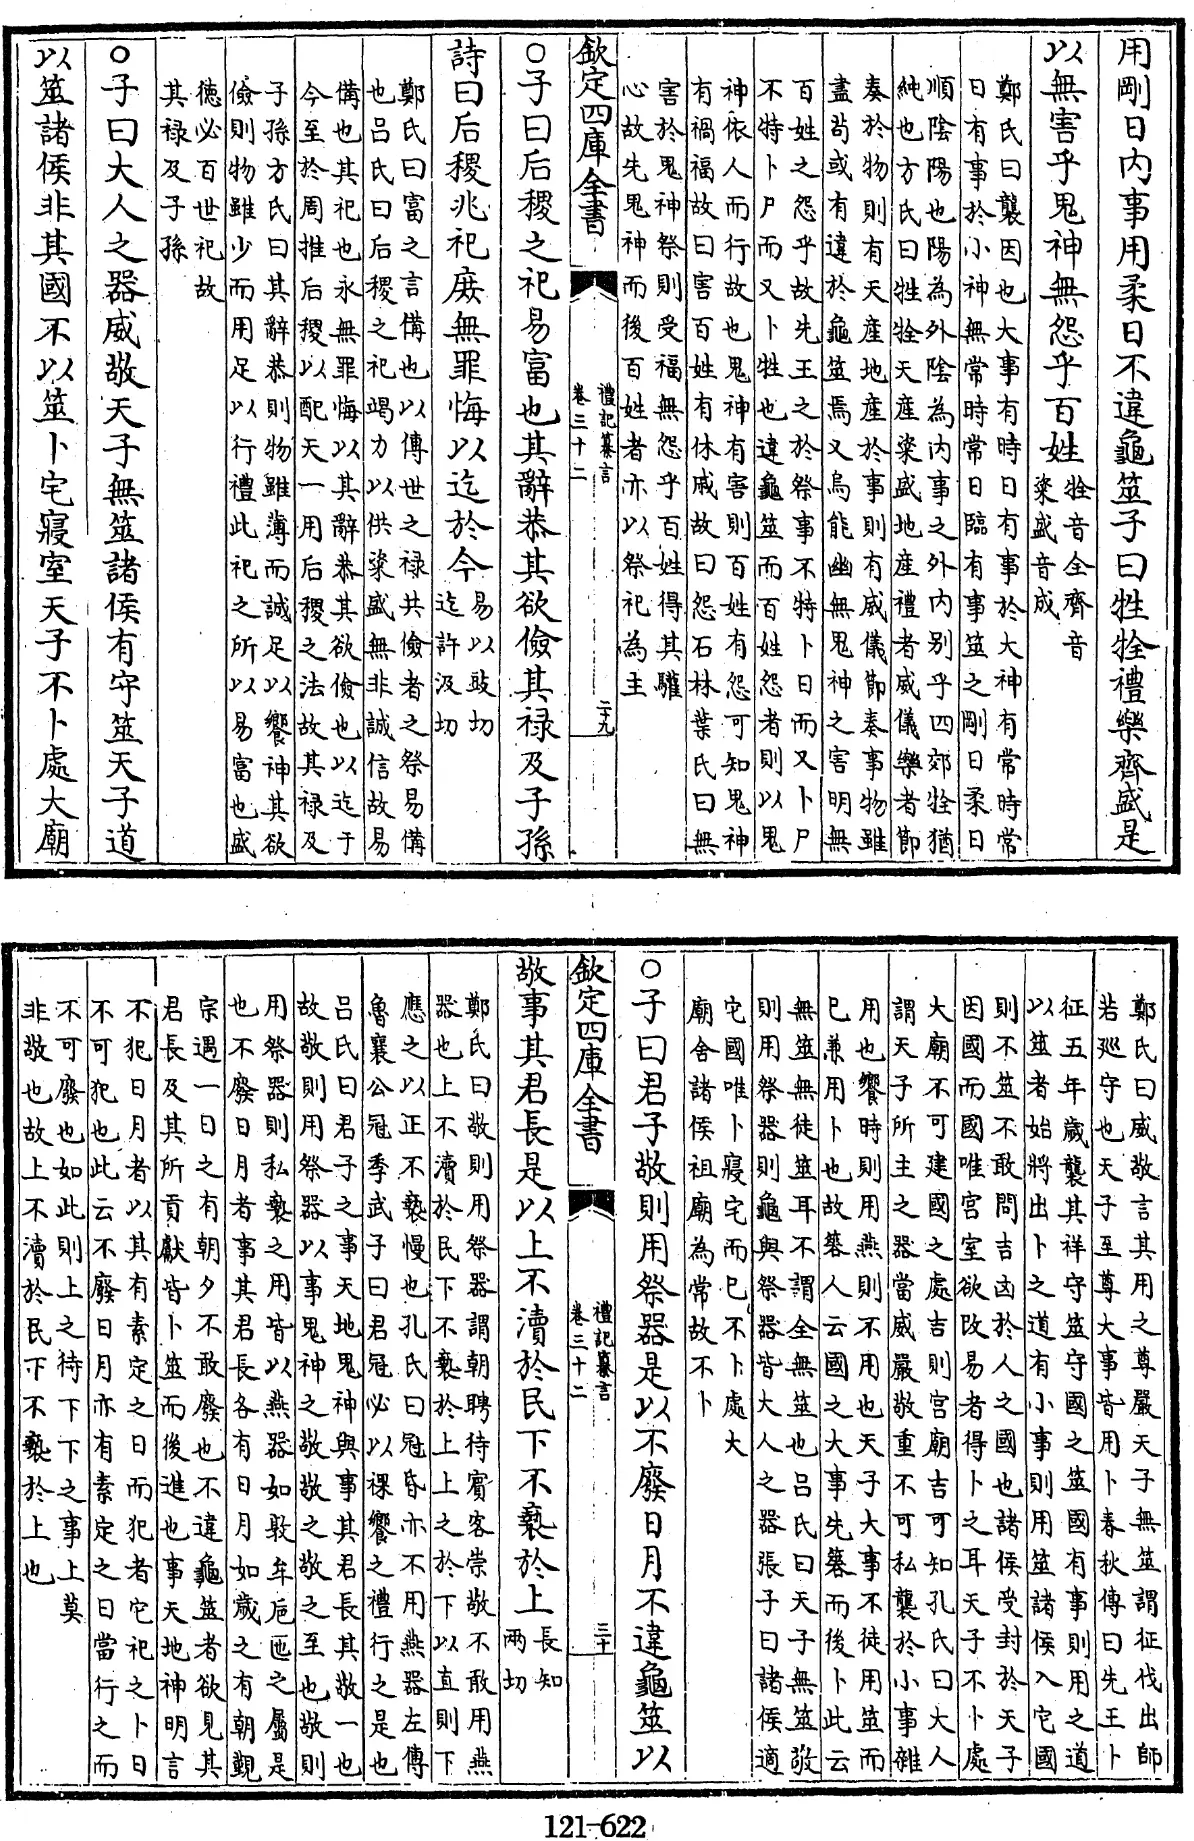 用剛日内事用柔日不違龜筮子曰牲牷禮樂齊盛是
以無害乎鬼神無怨乎百姓 牷音全齊音
粢盛音成
鄭氏曰襲因也大事有時日有事於大神有常時常
日有事於小神無常時常日臨有事筮之剛日柔日
順陰陽也陽為外陰為内事之外内别乎四郊牷猶
純也方氏曰牲牷天産粢盛地産禮者威儀樂者節
奏於物則有天産地産於事則有威儀節奏事物雖
盡苟或有違於龜筮焉又烏能幽無鬼神之害明無
百姓之怨乎故先王之於祭事不特卜日而又卜尸
不特卜尸而又卜牲也違龜筮而百姓怨者則以鬼
神依人而行故也鬼神有害則百姓有怨可知鬼神
有禍福故曰害百姓有休戚故曰怨石林葉氏曰無
害於鬼神祭則受福無怨乎百姓得其驩
心故先鬼神而後百姓者亦以祭祀為主
欽定四庫全書
禮記纂言
卷三十二
二十九
○子曰后稷之祀易富也其辭恭其欲儉其禄及子孫
詩曰后稷兆祀庶無罪悔以迄於今 易以豉切
迄許汲切
鄭氏曰富之言備也以傳世之禄共儉者之祭易備
也吕氏曰后稷之祀竭力以供粢盛無非誠信故易
備也其祀也永無罪悔以其辭恭其欲儉也以迄于
今至於周推后稷以配天一用后稷之法故其禄及
子孫方氏曰其辭恭則物雖薄而誠足以饗神其欲
儉則物雖少而用足以行禮此祀之所以易富也盛
德必百世祀故
其禄及子孫
○子曰大人之器威敬天子無筮諸侯有守筮天子道
以筮諸侯非其國不以筮卜宅寢室天子不卜處大廟
鄭氏曰威敬言其用之尊嚴天子無筮謂征伐出師
若廵守也天子至尊大事皆用卜春秋傳曰先王卜
征五年歳襲其祥守筮守國之筮國有事則用之道
以筮者始將出卜之道有小事則用筮諸侯入它國
則不筮不敢問吉凶於人之國也諸侯受封於天子
因國而國唯宫室欲改易者得卜之耳天子不卜處
大廟不可建國之處吉則宫廟吉可知孔氏曰大人
謂天子所主之器當威嚴敬重不可私襲於小事雜
用也饗時則用燕則不用也天子大事不徒用筮而
已兼用卜也故簭人云國之大事先簭而後卜此云
無筮無徒筮耳不謂全無筮也吕氏曰天子無筮敬
則用祭器則龜與祭器皆大人之器張子曰諸侯適
宅國唯卜寢宅而已不卜處大
廟舍諸侯祖廟為常故不卜
○子曰君子敬則用祭器是以不廢日月不違龜筮以
欽定四庫全書
禮記纂言
卷三十二
三十
敬事其君長是以上不瀆於民下不䙝於上 長知
兩切
鄭氏曰敬則用祭器謂朝聘待賓客崇敬不敢用燕
器也上不瀆於民下不䙝於上上之於下以直則下
應之以正不䙝慢也孔氏曰冠昏亦不用燕器左傳
魯襄公冠季武子曰君冠必以祼饗之禮行之是也
吕氏曰君子之事天地鬼神與事其君長其敬一也
故敬則用祭器以事鬼神之敬敬之敬之至也敬則
用祭器則私䙝之用皆以燕器如敦牟巵匜之屬是
也不廢日月者事其君長各有日月如歲之有朝覲
宗遇一日之有朝夕不敢廢也不違龜筮者欲見其
君長及其所貢獻皆卜筮而後進也事天地神明言
不犯日月者以其有素定之日而犯者它祀之卜日
不可犯也此云不廢日月亦有素定之日當行之而
不可廢也如此則上之待下下之事上莫
非敬也故上不瀆於民下不䙝於上也
121-622